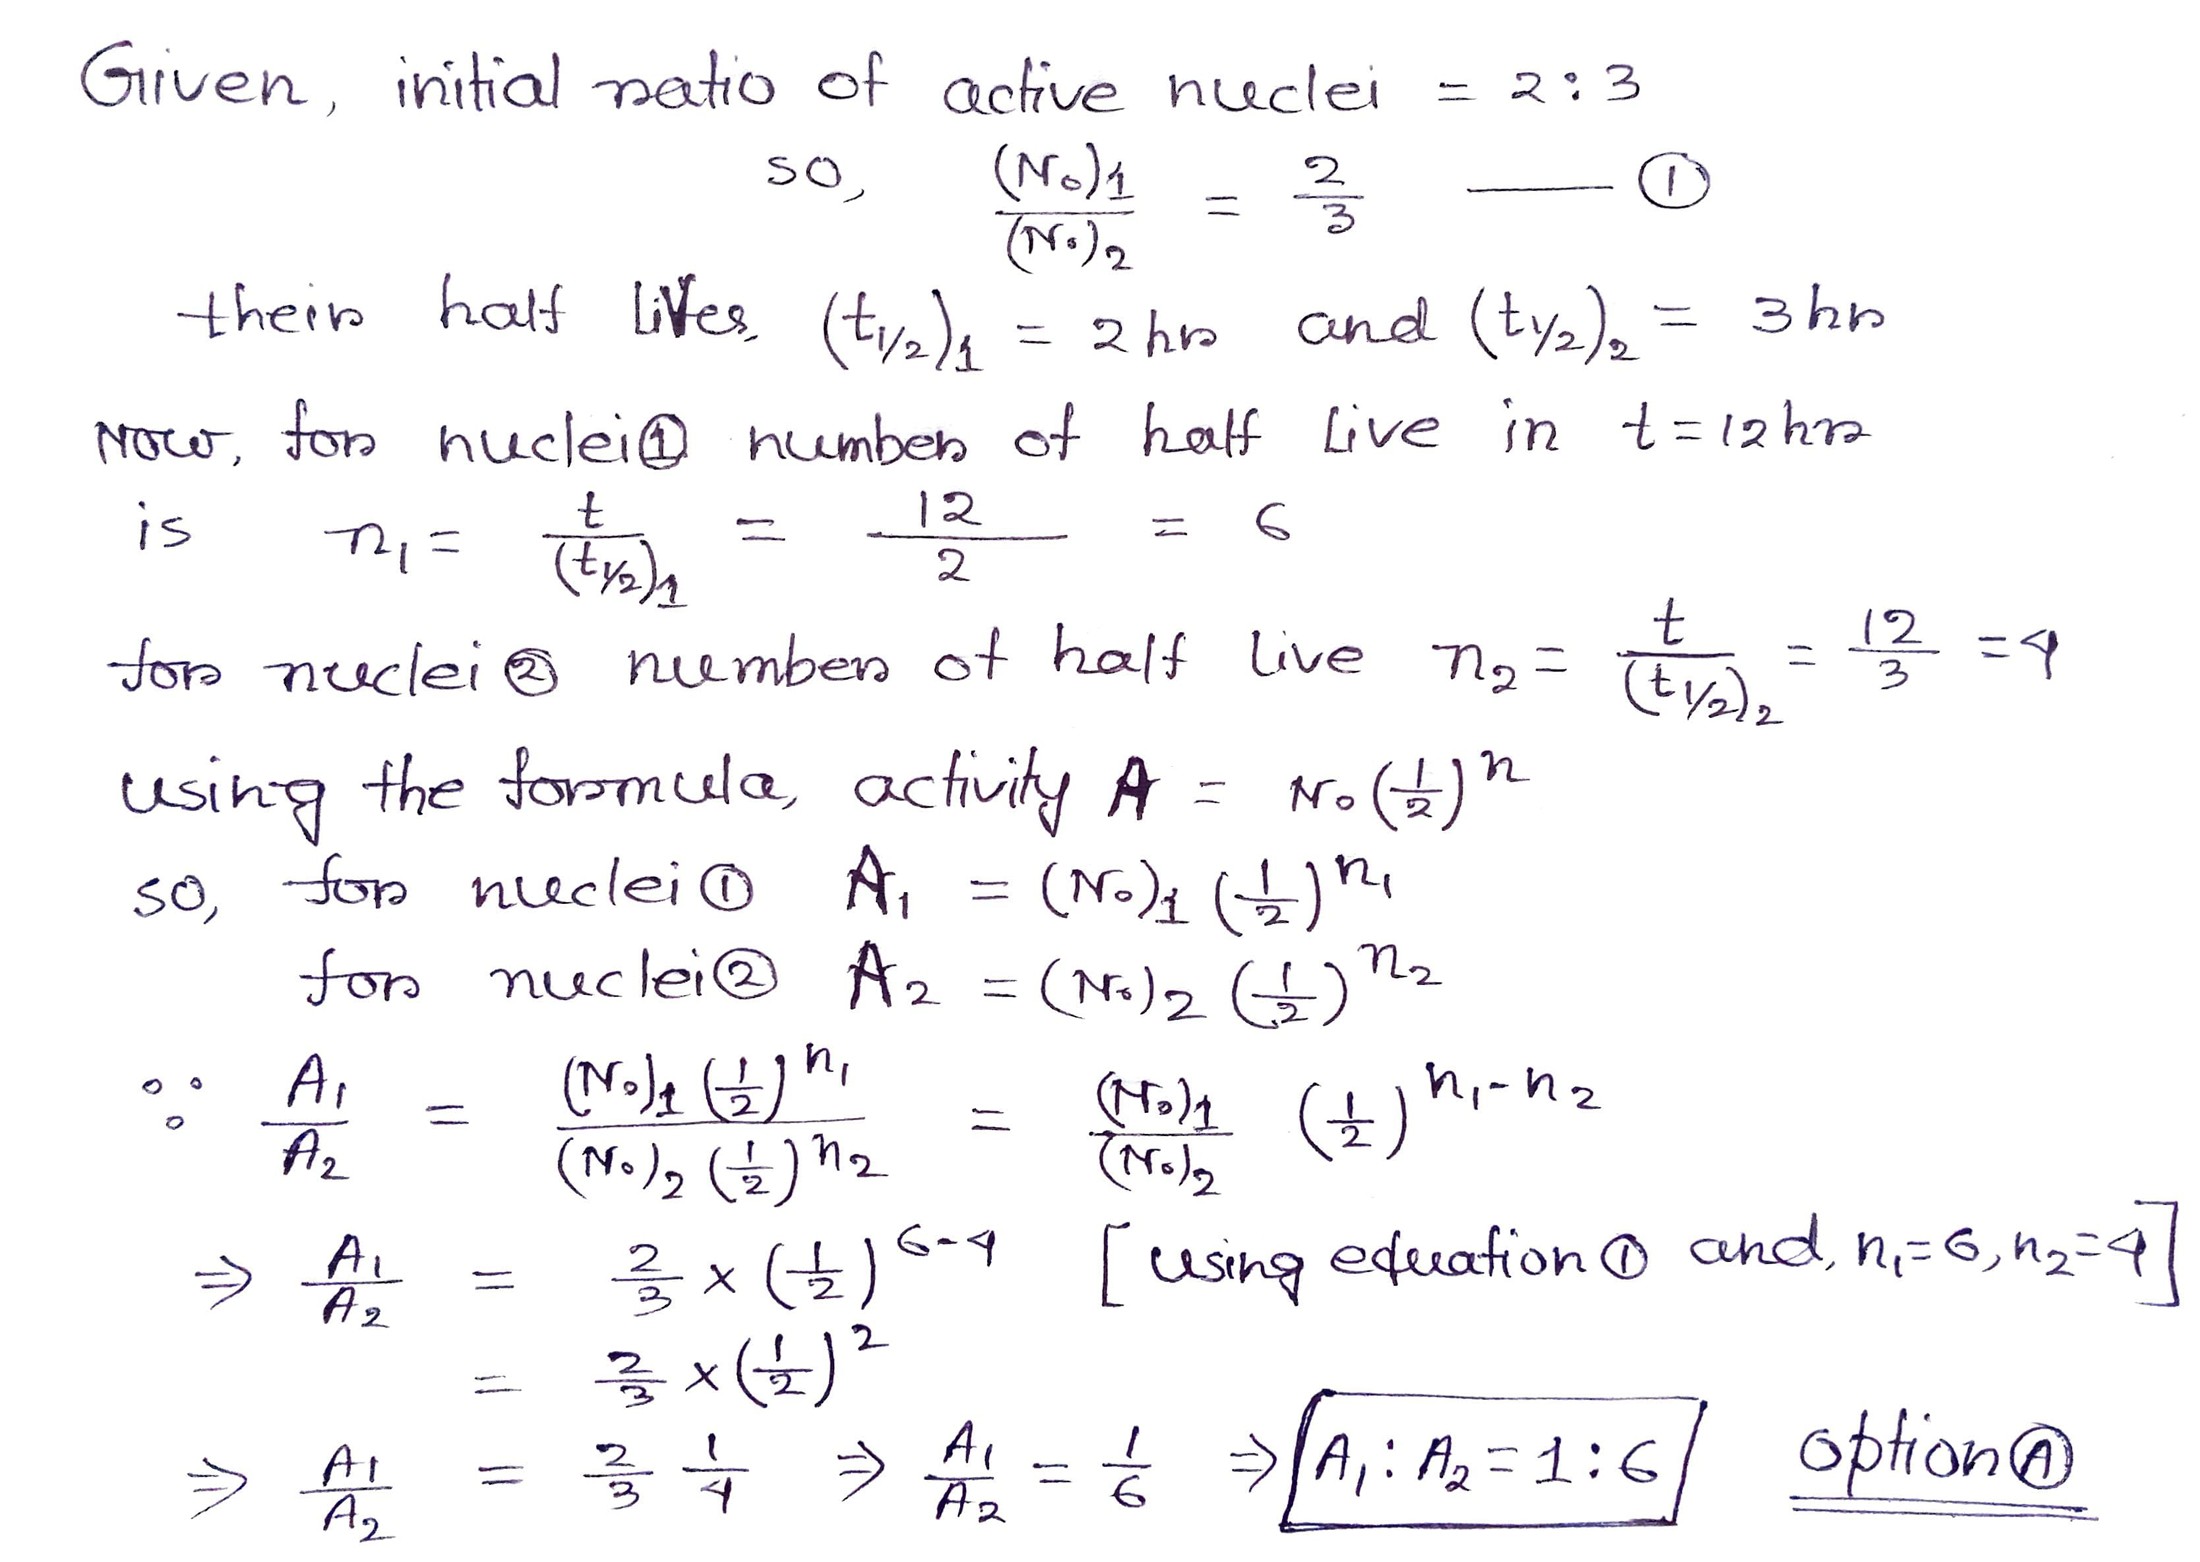 Given, initial ratio of active nuclei = 2:3
so, (N₀)₁/(N₀)₂ = 2/3 —— ①
their half lives, (t1/2)₁ = 2 hr and (t1/2)₂ = 3 hr
Now, for nuclei ① number of half live in t = 12 hr
is n₁ = t/(t1/2)₁ = 12/2 = 6
for nuclei ② number of half live n₂ = t/(t1/2)₂ = 12/3 = 4
using the formula, activity A = N₀(1/2)ⁿ
so, for nuclei ① A₁ = (N₀)₁ (1/2)^n₁
for nuclei ② A₂ = (N₀)₂ (1/2)^n₂
∵ A₁/A₂ = (N₀)₁ (1/2)^n₁ / (N₀)₂ (1/2)^n₂ = (N₀)₁/(N₀)₂ (1/2)^n₁-n₂
⇒ A₁/A₂ = 2/3 × (1/2)^6-4 [using equation ① and, n₁=6, n₂=4]
= 2/3 × (1/2)²
⇒ A₁/A₂ = 2/3 1/4 ⇒ A₁/A₂ = 1/6 ⇒ A₁ : A₂ = 1:6 option Ⓐ